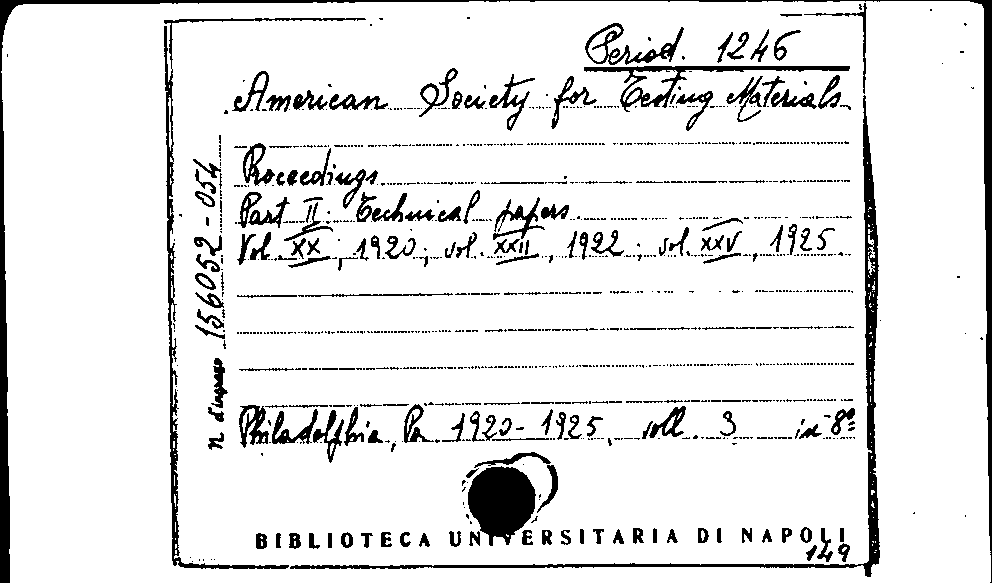 Period. 1246
American Society for Testing Materials
Proceedings
Part II: Technical papers.
Vol. XX, 1920; vol. XXII, 1922; vol. XXV, 1925.
Philadelphia, Pa 1920-1925, voll. 3 in 8º
n. d'ingresso 156052-054
BIBLIOTECA UNIVERSITARIA DI NAPOLI
149